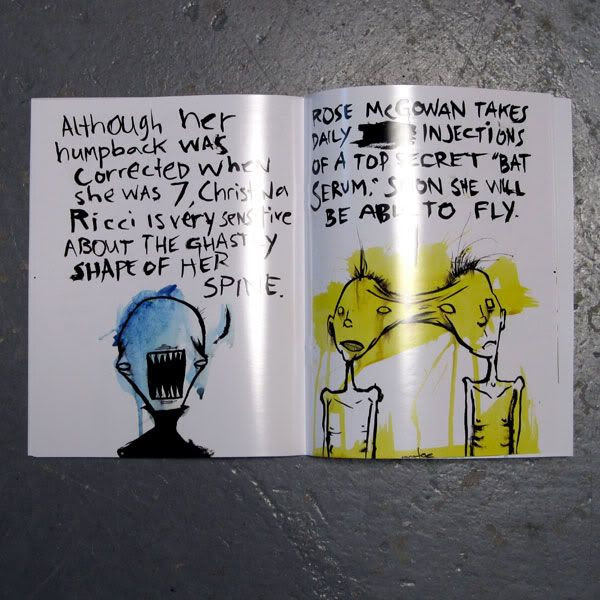 Although her
humpback was
corrected when
she was 7, Christina
Ricci is very sensitive
ABOUT THE GHASTLY
SHAPE OF HER
SPINE.
ROSE McGOWAN TAKES
DAILY INJECTIONS
OF A TOP SECRET "BAT
SERUM." SOON SHE WILL
BE ABLE TO FLY.